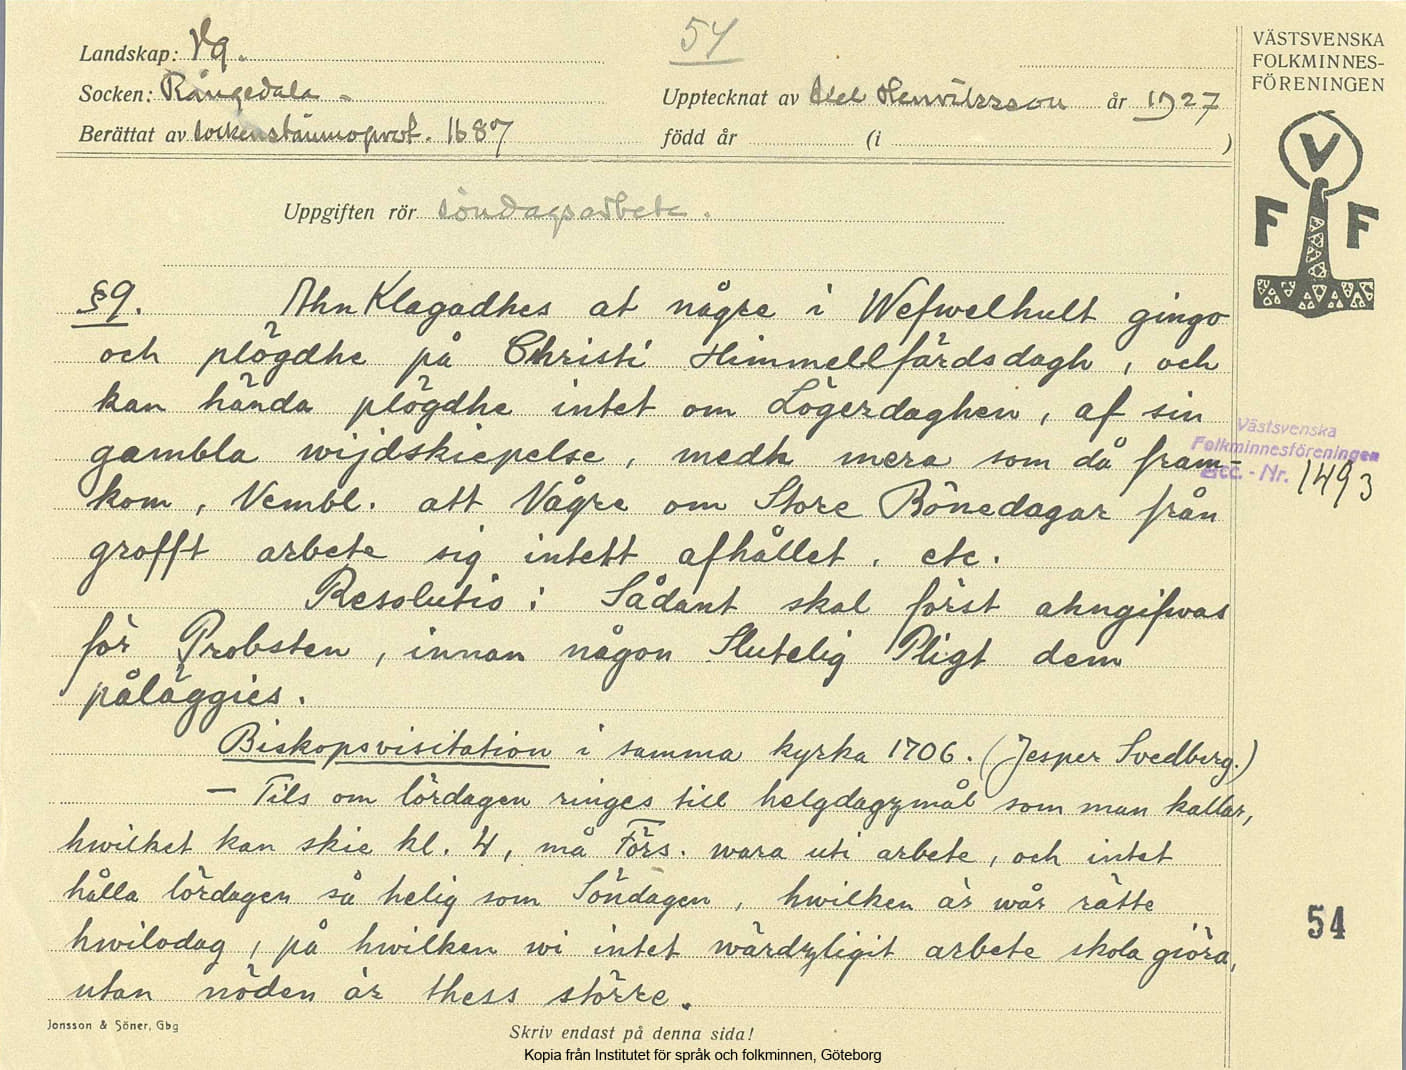 54
Landskap: Vg.
Socken: Rångedala
Upptecknat av Axel Henriksson år 1927
Berättat av sockenstämmoprot. 1687
född år (i )
VÄSTSVENSKA
FOLKMINNES-
FÖRENINGEN
V
F F
Uppgiften rör söndagsarbete.
§9. Ahn Klagadhes at någre i Wefwelhult gingo
och plögdhe på Christi Himmellfärdsdagh, och
kan hända plögdhe intet om Lögerdaghen, af sin
gambla wijdskiepelse, medh mera som då fram-
kom, Vembl. att Någre om Store Bönedagar från
grofft arbete sig intett afhållet. etc.
Resolutio: Sådant skal först ahngifwas
för Probsten, innan någon Slutelig Pligt dem
påläggies.
Biskopsvisitation i samma kyrka 1706. (Jesper Svedberg.)
— Tils om lördagen ringes till helgdagzmål som man kallar,
hwilket kan skie kl. 4, må Förs. wara uti arbete, och intet
hålla lördagen så helig som Söndagen, hwilken är wår rätte
hwilodag, på hwilken wi intet wärdzligit arbete skola giöra,
utan nöden är thess större.
Västsvenska
Folkminnesföreningen
Acc. - Nr. 1493
54
Jonsson & Söner, Gbg
Skriv endast på denna sida!
Kopia från Institutet för språk och folkminnen, Göteborg